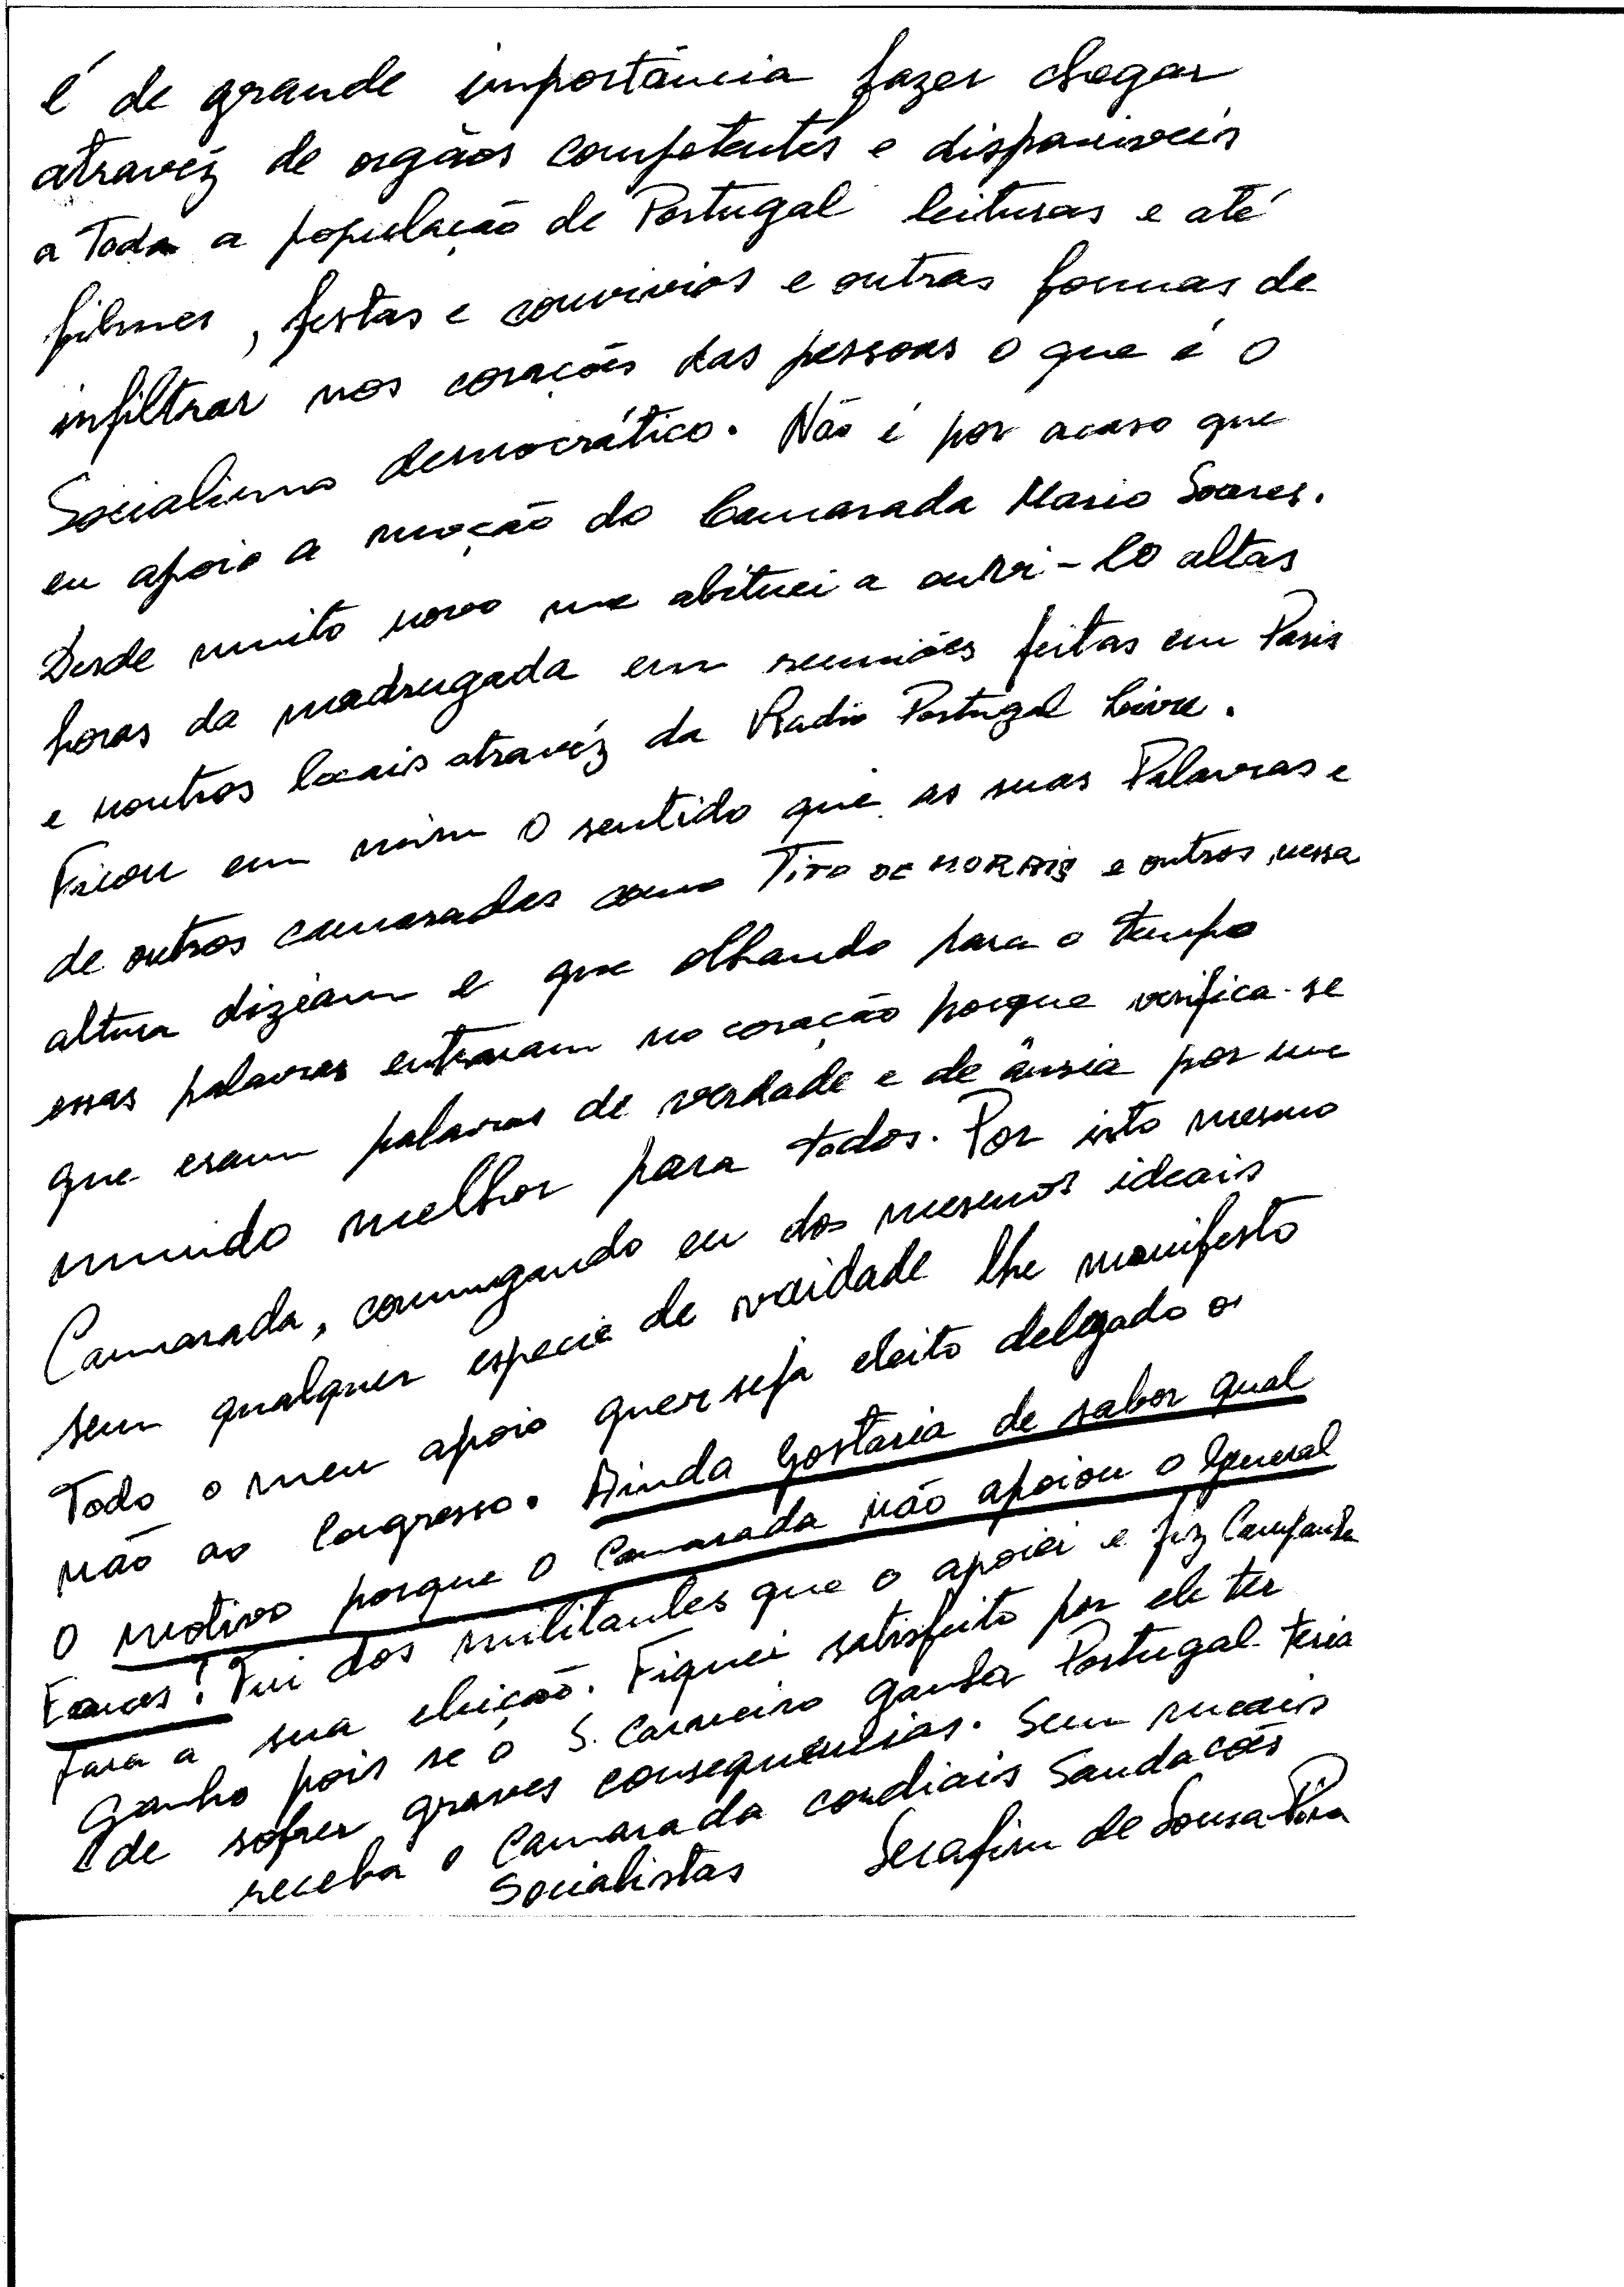 é de grande importância fazer chegar
atravéz de orgãos competentes e disponiveis
a Toda a população de Portugal leituras e até
filmes, festas e convivios e outras formas de
infiltrar nos corações das pessoas o que é o
Socialismo democrático. Não é por acaso que
eu apoio a moção do Camarada Mario Soares.
Desde muito novo me abituei a ouvi-lo altas
horas da madrugada em reuniões feitas em Paris
e noutros locais atravéz da Radio Portugal Livre.
Ficou em mim o sentido que as suas Palavras e
de outros camaradas como TITO DE MORAIS e outros, nessa
altura diziam e que olhando para o tempo
essas palavras entraram no coração porque verifica-se
que eram palavras de verdade e de ânsia por um
mundo melhor para todos. Por isto mesmo
Camarada, comungando eu dos mesmos ideais
sem qualquer especie de vaidade lhe manifesto
Todo o meu apoio quer seja eleito delegado ou
não ao Congresso. Ainda Gostaria de saber qual
o motivo porque o Camarada não apoiou o General
Eanes! Fui dos militantes que o apoiei e fiz Campanha
Para a sua eleição. Fiquei satisfeito por ele ter
ganho pois se o S. Carneiro ganha Portugal teria
de sofrer graves consequencias. Sem mais
receba o Camarada cordiais Saudacões
Socialistas Serafim de Sousa